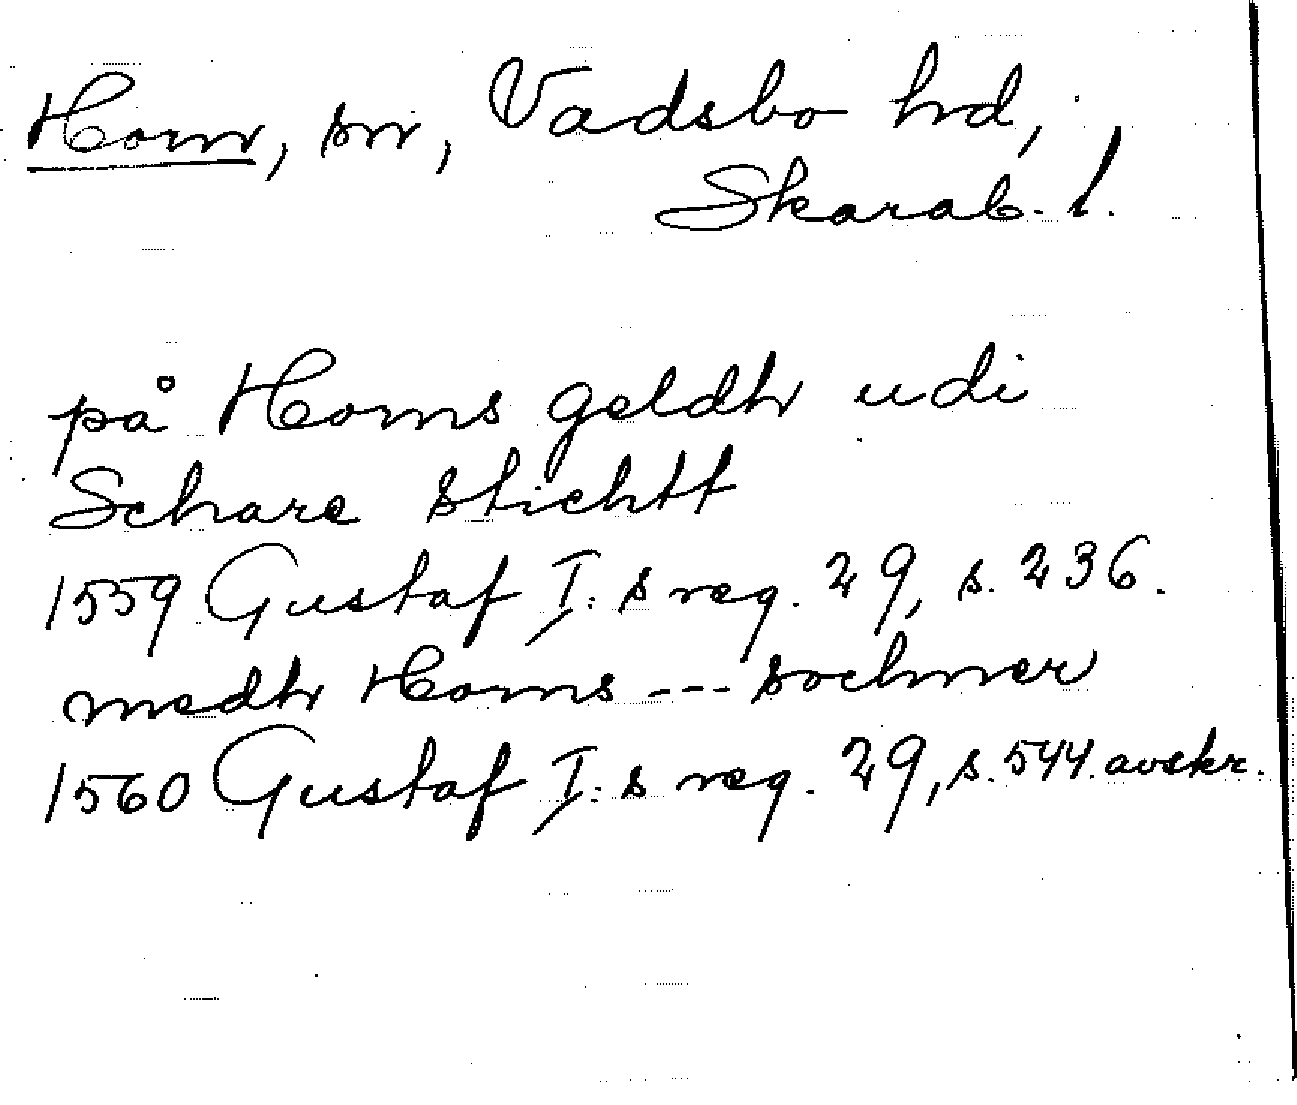 Horn, sn, Vadsbo hd,
Skarab. l.
på Horns geldh udi
Schare stichtt
1559 Gustaf I:s reg. 29, s. 236.
medh Horns --- sochner
1560 Gustaf I:s reg. 29, s. 544. avskr.